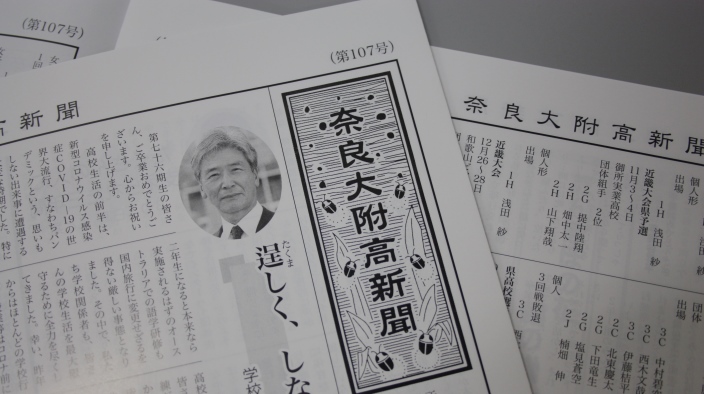 (第107号)
高新聞
(第107号)
奈良大附高新聞
たくま
逞しく、しな
学校
第七十六期生の皆さ
ん、ご卒業おめでとうご
ざいます。心からお祝い
を申し上げます。
高校生活の前半は、
新型コロナウイルス感染
症COVID-19の世
界大流行、すなわちパン
デミックという、思いも
しない出来事に遭遇する
二年生になると本来なら
実施されるはずのオース
トラリアでの語学研修も
国内旅行に変更せざるを
得ない厳しい事態となり
ました。その中で、私た
ち学校関係者も、皆さ
んの学校生活を最大限
守るために全力を尽くし
てきました。幸い、昨年
奈良大附高新聞
個人形
出場
1H 浅田 紗
近畿大会県予選
11月3〜4日
御所実業高校
団体組手 2位
2G 提中陸翔
2H 畑中太一
2H 山下翔哉
個人形
出場
1H 浅田 紗
近畿大会
12月26〜28日
和歌山
団体
出場
3C 中村碧空
3C 西木文哉
3C 伊藤桔平
2C 北東慶太
2G 下田竜生
2G 塩見蒼空
2J 楠畑 伸
個人
3回戦敗退
3C 西
県高校選